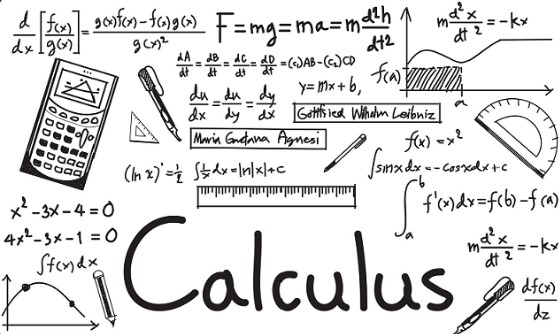 d/dx [f(x)/g(x)] = g(x)f(x) - f(x)g(x) / g(x)²
F = mg = ma = m d²h/dt²
m d²x/dt² = -kx
dA/dt = dB/dt = dC/dt = dD/dt = (c₁)AB - (c₂)CD
f(a)
a
du/dx = du/dy = dy/dx
y = mx + b,
Gottfried Wilhelm Leibniz
Maria Gaetana Agnesi
f(x) = x²
(ln x)' = 1/2
∫ 1/x dx = ln|x| + c
∫ sinx dx = -cosxdx + c
∫ₐᵇ f'(x)dx = f(b) - f(a)
x² - 3x - 4 = 0
4x² - 3x - 1 = 0
∫f(x)dx
Calculus
m d²x/dt² = -kx
df(x)/dz